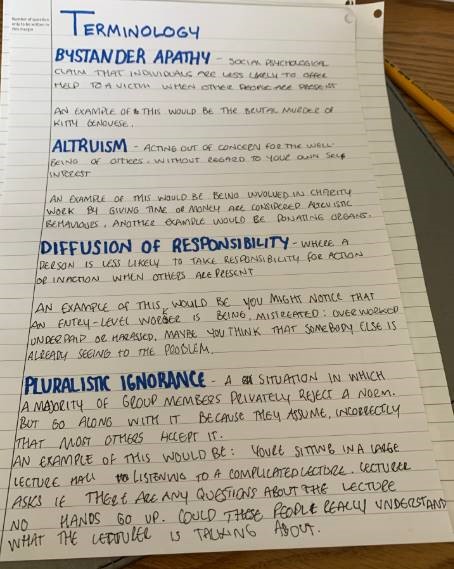 Number of question
only to be written in
this margin
TERMINOLOGY
BYSTANDER APATHY - SOCIAL PSYCHOLOGICAL
CLAIM THAT INDIVIDUALS ARE LESS LIKELY TO OFFER
HELP TO A VICTIM WHEN OTHER PEOPLE ARE PRESENT
AN EXAMPLE OF THIS WOULD BE THE BRUTAL MURDER OF
KITTY GENOVESE.
ALTRUISM - ACTING OUT OF CONCERN FOR THE WELL-
BEING OF OTHERS. WITHOUT REGARD TO YOUR OWN SELF
INTEREST
AN EXAMPLE OF THIS WOULD BE BEING INVOLVED IN CHARITY
WORK BY GIVING TIME OR MONEY ARE CONSIDERED ALTRUISTIC
BEHAVIOURS. ANOTHER EXAMPLE WOULD BE DONATING ORGANS.
DIFFUSION OF RESPONSIBILITY - WHERE A
PERSON IS LESS LIKELY TO TAKE RESPONSIBILITY FOR ACTION
OR INACTION WHEN OTHERS ARE PRESENT
AN EXAMPLE OF THIS, WOULD BE YOU MIGHT NOTICE THAT
AN ENTRY-LEVEL WORKER IS BEING, MISTREATED: OVERWORKED
UNDERPAID OR HARASSED. MAYBE YOU THINK THAT SOMEBODY ELSE IS
ALREADY SEEING TO THE PROBLEM.
PLURALISTIC IGNORANCE - A SITUATION IN WHICH
A MAJORITY OF GROUP MEMBERS PRIVATELY REJECT A NORM.
BUT GO ALONG WITH IT BECAUSE THEY ASSUME, INCORRECTLY
THAT MOST OTHERS ACCEPT IT.
AN EXAMPLE OF THIS WOULD BE: YOURE SITTING IN A LARGE
LECTURE HALL LISTENING TO A COMPLICATED LECTURE. LECTURER
ASKS IF THERE ARE ANY QUESTIONS ABOUT THE LECTURE
NO HANDS GO UP. COULD THOSE PEOPLE REALLY UNDERSTAND
WHAT THE LECTURER IS TALKING ABOUT.